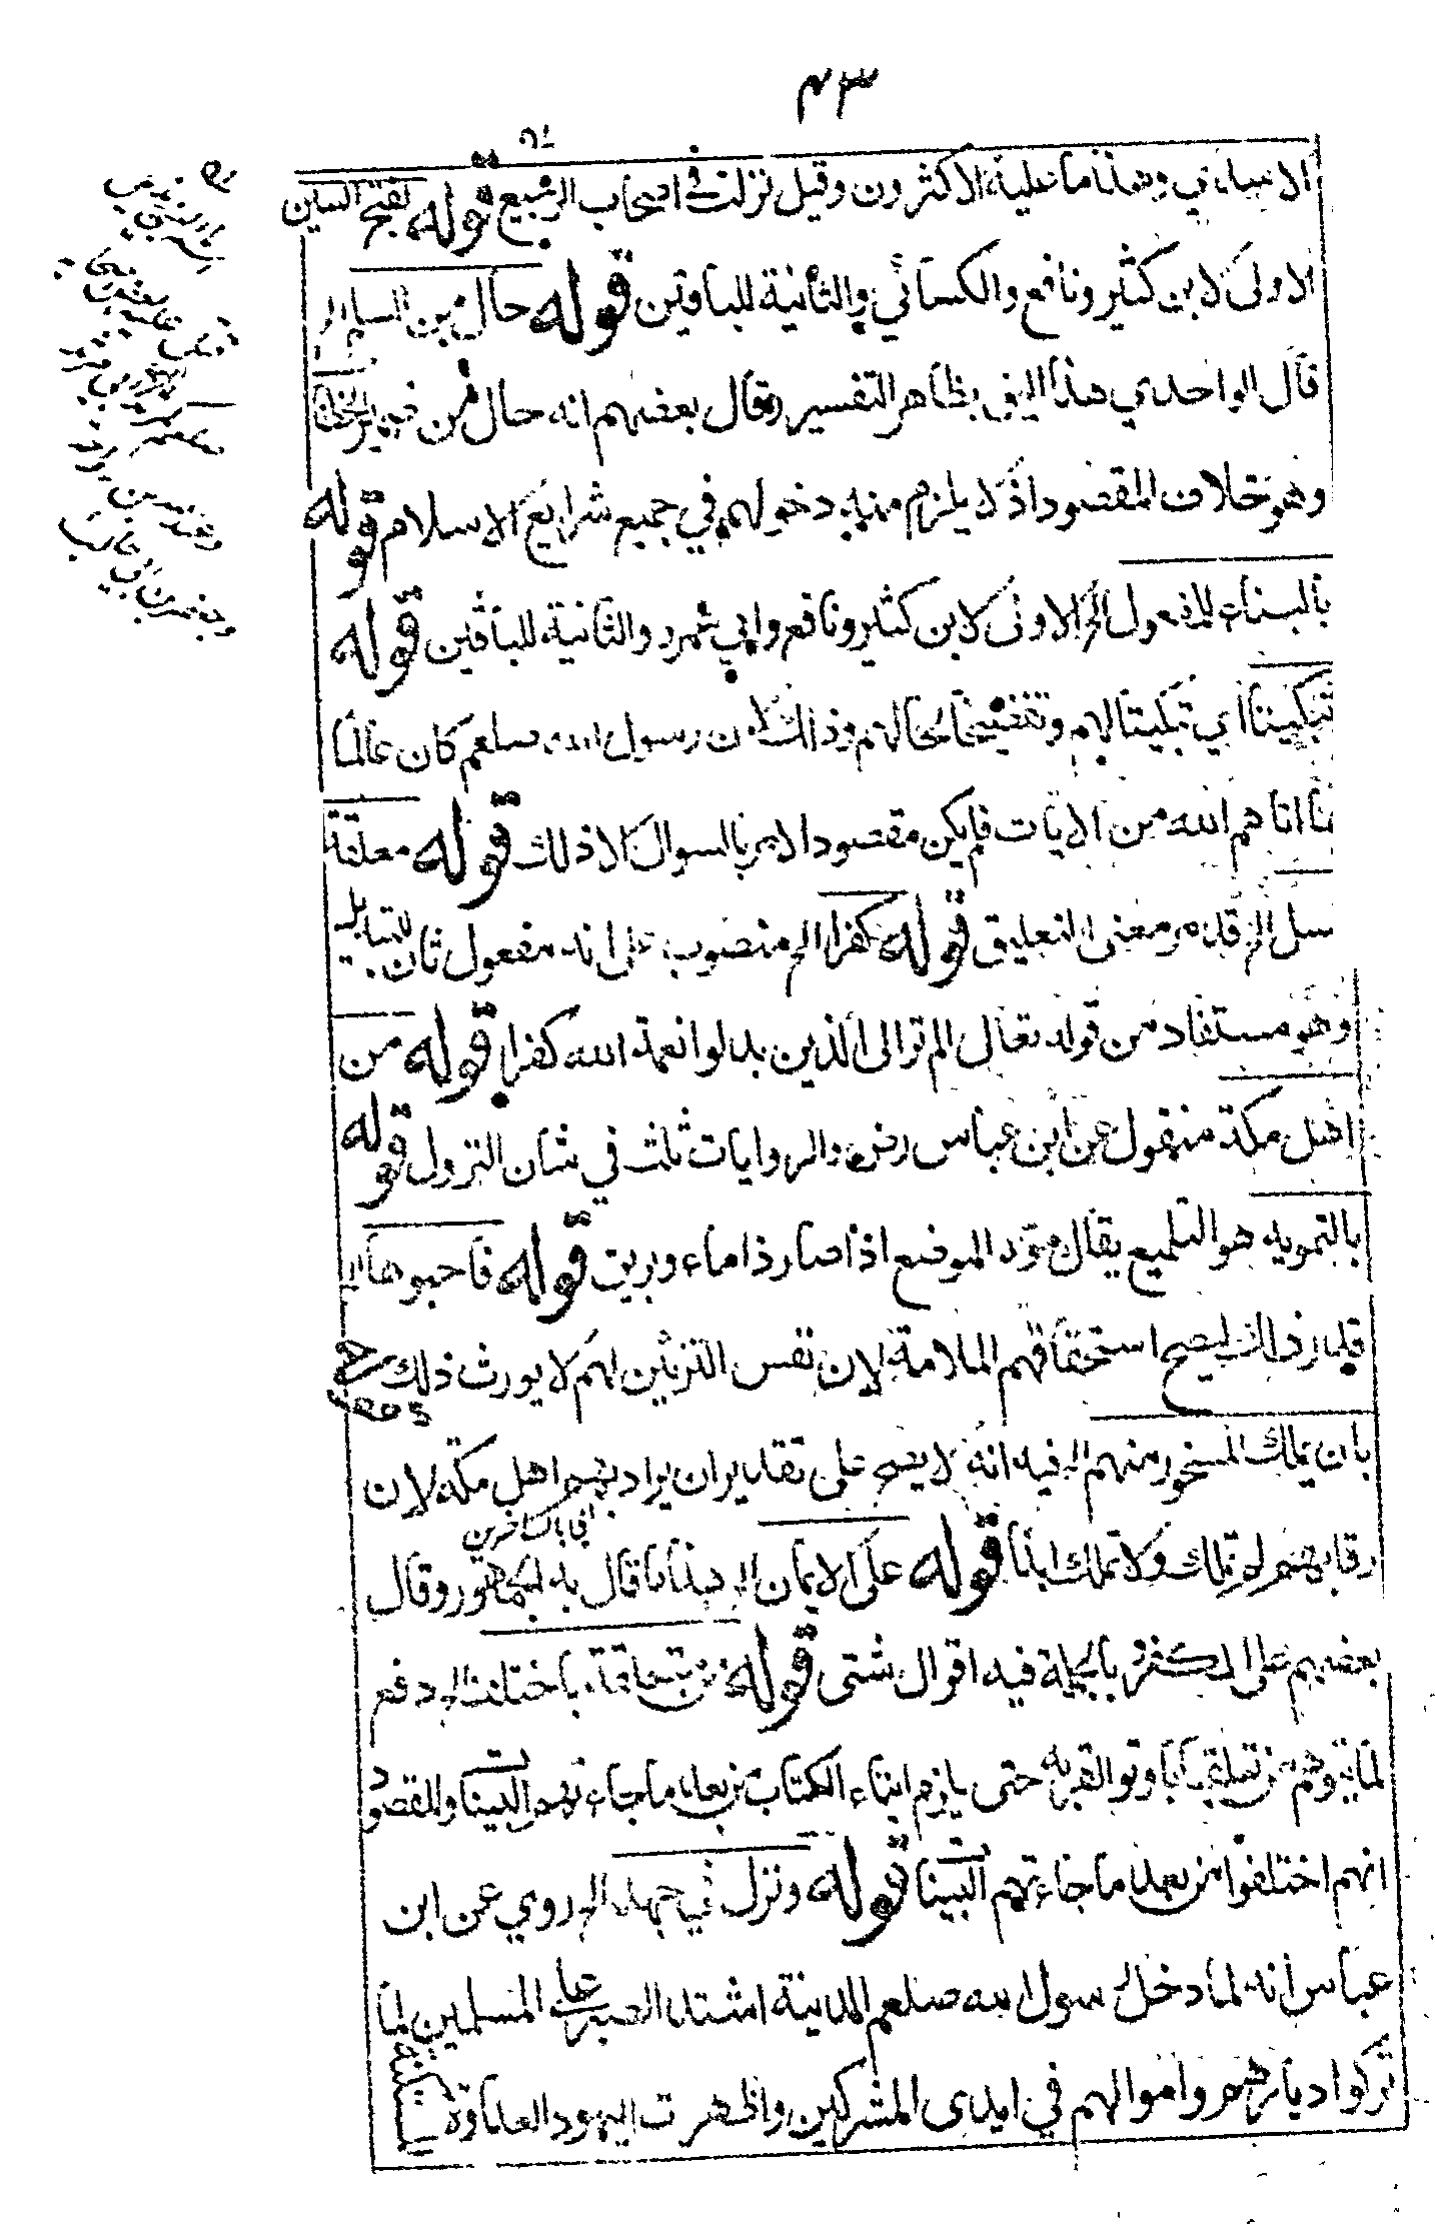 ٤٣
الانصاري وهذا ما عليه الاكثرون وقيل نزلت في اصحاب الرجيع قوله بفتح السين
الاولى لابن كثير ونافع والكسائي والثانية للباقين قوله حال من السلم الخ
قال الواحدي هذا اليق بظاهر التفسير وقال بعضهم انه حال من ضمير
وهو خلاف المقصود اذ لا يلزم منه دخولهم في جميع شرايع الاسلام قوله
بالبناء للمفعول الخ الاولى لابن كثير ونافع وابي عمرو والثانية للباقين قوله
تبكيتا اي تبكيتا لهم وتفضيحا لحالهم وذلك لان رسول الله صلعم كان عالما
بما اتاهم الله من الايات فلم يكن مقصود الامر بالسوال الا ذلك قوله معلقة
سل الخ قد مر معنى التعليق قوله كفرا الخ منصوب على انه مفعول ثان للتبديل
وهو مستفاد من قوله تعالى الم تر الى الذين بدلوا نعمة الله كفرا قوله من
اهل مكة منقول عن ابن عباس رض والروايات ثلث في شان النزول قوله
بالتمويه هو التلميع يقال موّه الموضع اذا صار ذا ماء وبريق قوله فاحبوها الخ
قدر ذلك ليصح استحقاقهم الملامة لان نفس التزئين لهم لا يورث ذلك
بان يملك المسخور منهم الخ فيه انه لا يصح على تقدير ان يراد بهم اهل مكة لان
رقابهم لم تملك ولا تملك ابدا قوله على الايمان الخ هذا ما قال به الجمهور وقال
بعضهم على الكفر وبالجملة فيه اقوال شتى قوله من متعلقة باختلف الخ دفع
لما يتوهم من تعلقها باوتوا لقربه حتى يلزم ايتاء الكتاب من بعد ما جاءتهم البينات والمقصود
انهم اختلفوا من بعد ما جاءتهم البينات قوله ونزل في جهد الخ روي عن ابن
عباس انه لما دخل رسول الله صلعم المدينة اشتد الصبر على المسلمين لما
تركوا ديارهم واموالهم في ايدي المشركين واظهرت اليهود العداوة